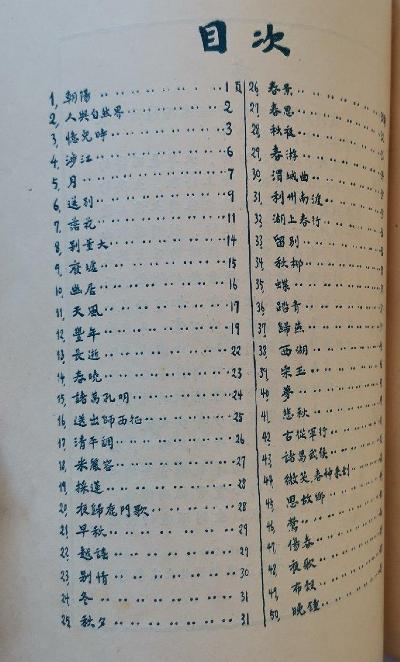 目次
1. 朝陽 1頁
2. 人與自然界 2
3. 憶兒時 3
4. 涉江 6
5. 月 7
6. 送別 9
7. 落花 11
8. 別重大 14
9. 廢墟 15
10. 幽居 16
11. 天風 17
12. 豐年 19
13. 長逝 22
14. 春晚 23
15. 諸葛孔明 24
16. 送出師西征 25
17. 清平調 26
18. 米麗容 27
19. 採蓮 28
20. 夜歸鹿門歌 28
21. 早秋 29
22. 越謠 29
23. 別情 30
24. 冬 31
25. 秋夕 31
26. 春景
27. 春思
28. 秋夜
29. 春游
30. 渭城曲
31. 利州南渡
32. 湖上春行
33. 留別
34. 秋柳
35. 蝶
36. 踏青
37. 歸燕
38. 西湖
39. 宋玉
40. 夢
41. 悲秋
42. 古從軍行
43. 諸葛武侯
44. 微笑春神來到
45. 思故鄉
46. 鶯
47. 傷春
48. 夜歌
49. 布穀
50. 晚鐘